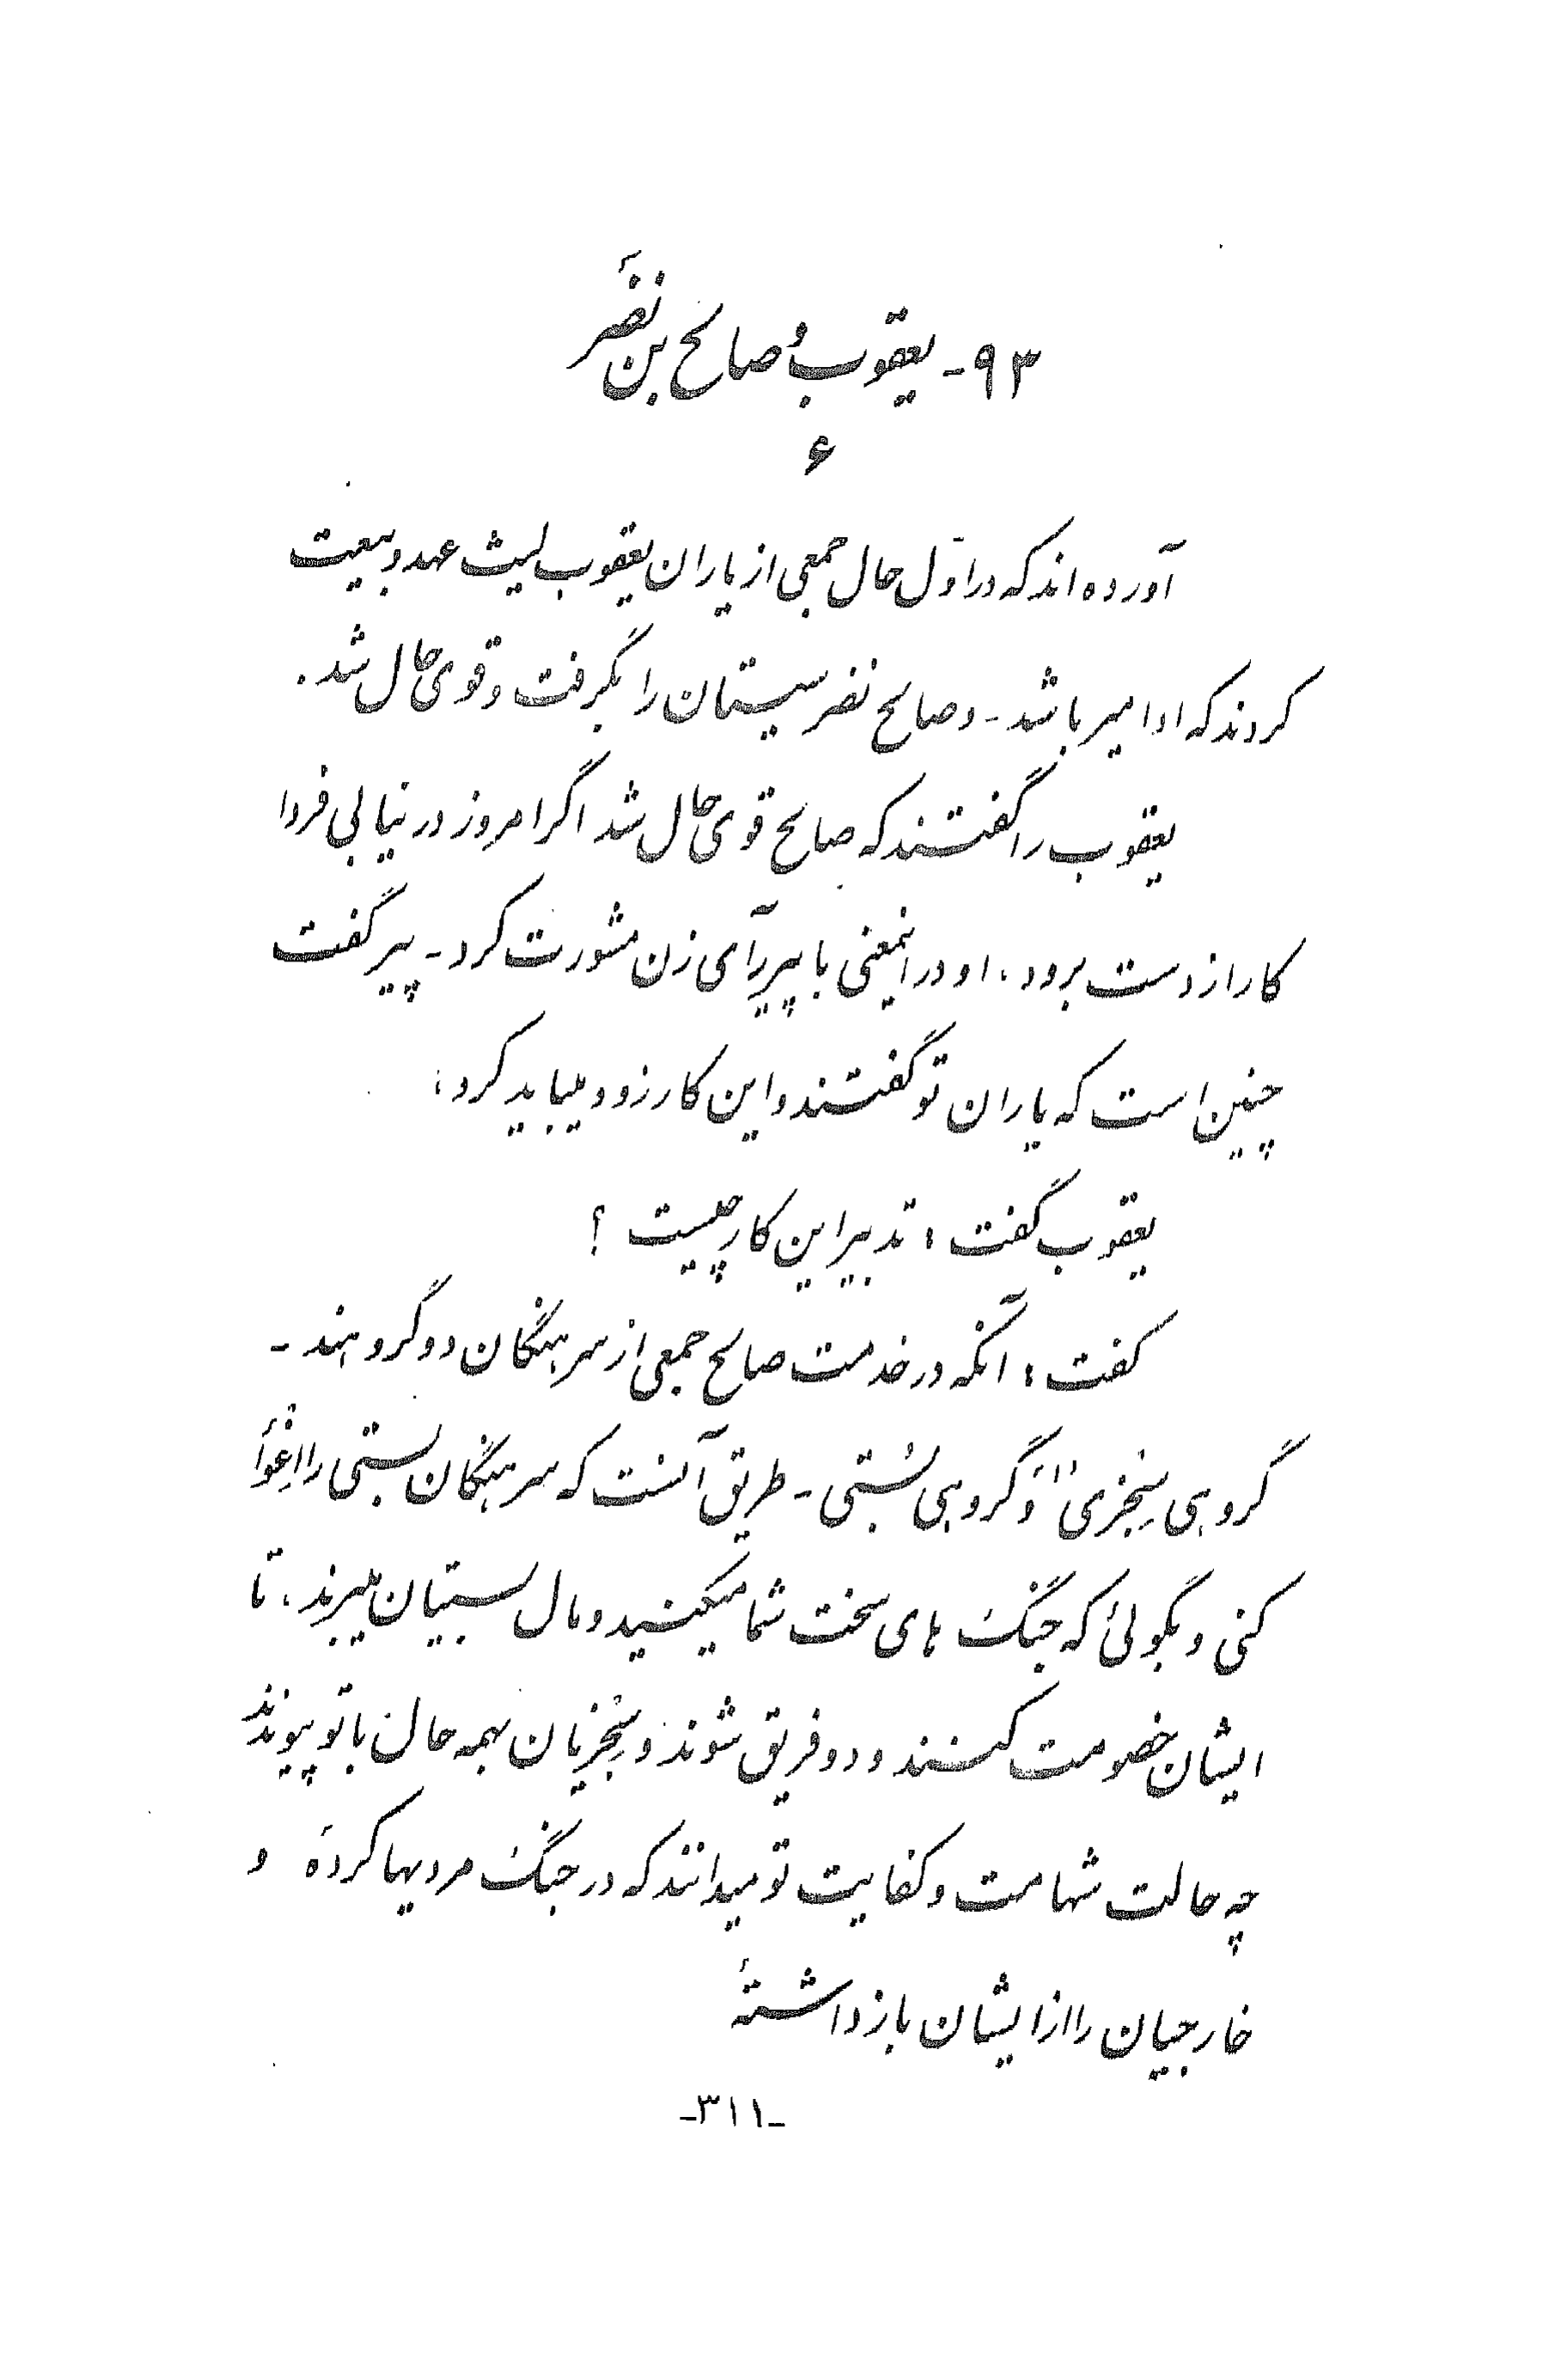 ۹۳- یعقوب و صالح بن نضر
۶
آورده اند که در اوّل حال جمعی از یاران یعقوب لیث عهد و بیعت
کردند که او امیر باشد - و صالح نضر سیستان را بگرفت و قوی حال شد .
یعقوب را گفتند که صالح قوی حال شد اگر امروز در نیابی فردا
کار از دست برود ، او در اینمعنی با پیر رآی زن مشورت کرد - پیر گفت
چنین است که یاران تو گفتند و این کار زود میباید کرد ،
یعقوب گفت : تدبیر این کار چیست ؟
گفت : آنکه در خدمت صالح جمعی از سرهنگان دو گروهند -
گروهی سِجْزی وَ گروهی بُستی - طریق آنست که سرهنگان بستی را اِغْوأ
کنی و بگوئی که جنگ های سخت شما میکنید و مال بستیان میبرند ، تا
ایشان خصومت کنند و دو فریق شوند و سِجْزیان بهمه حال با تو پیوندند
چه حالت شهامت و کفایت تو میدانند که در جنگ مردیها کردهٔ و
خارجیان را از ایشان بازداشتهٔ
-۳۱۱-